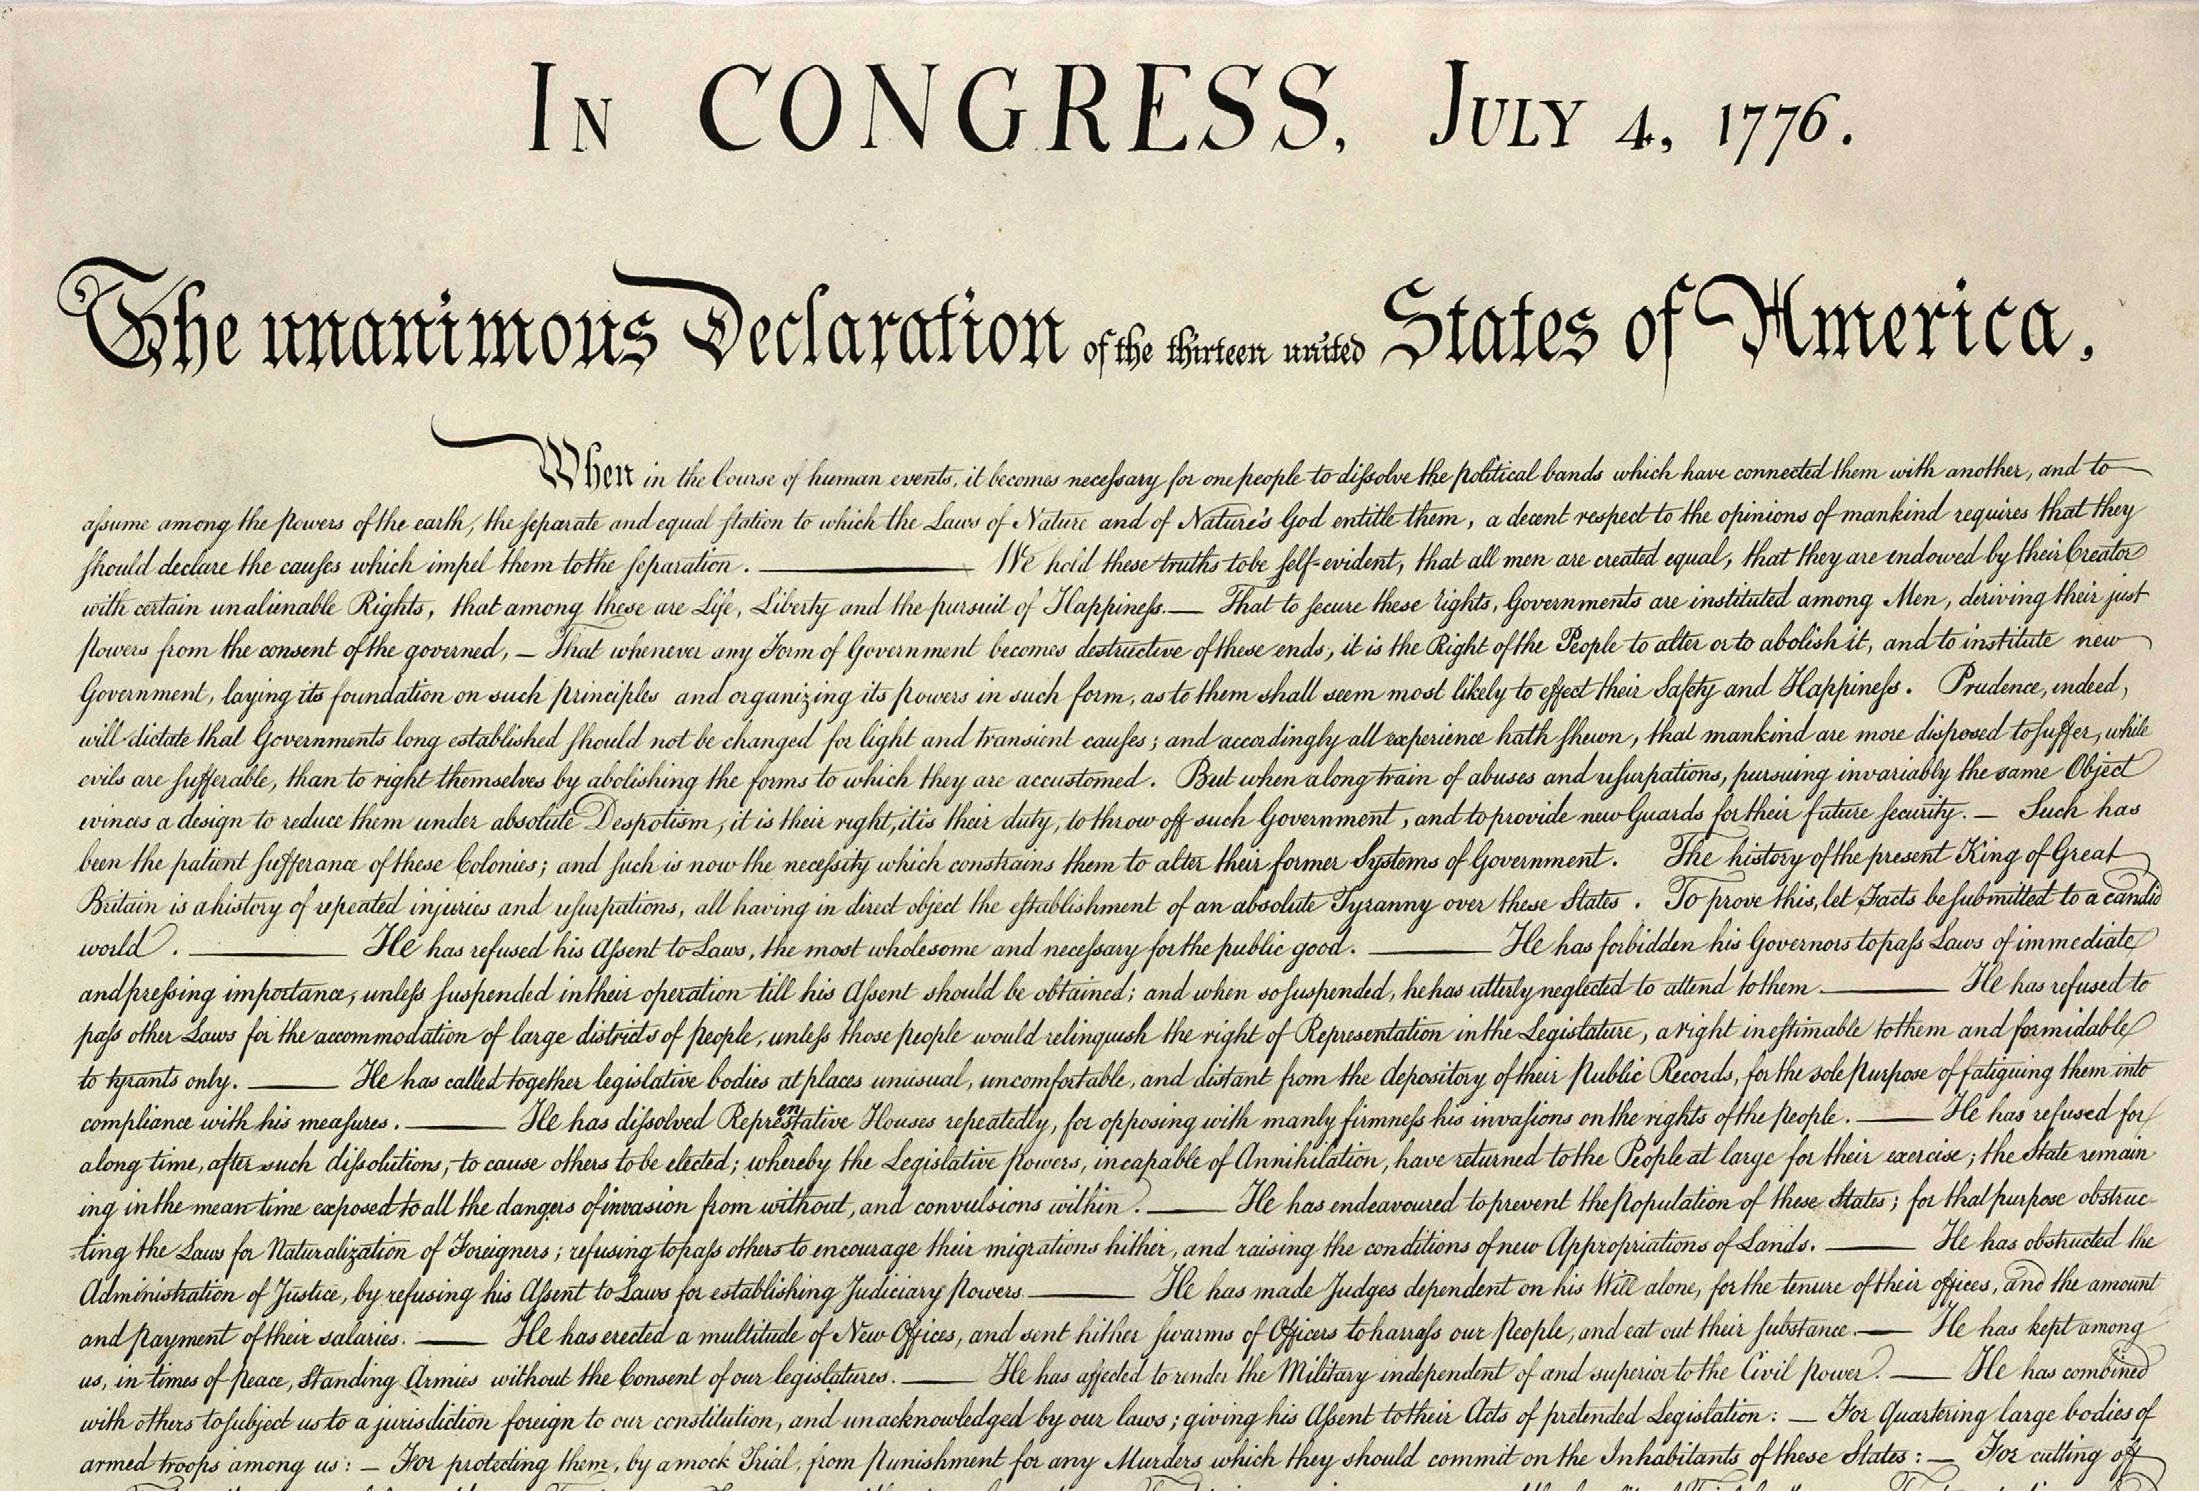 IN CONGRESS, JULY 4, 1776.
The unanimous Declaration of the thirteen united States of America,
When in the Course of human events, it becomes necessary for one people to dissolve the political bands which have connected them with another, and to
assume among the powers of the earth, the separate and equal station to which the Laws of Nature and of Nature's God entitle them, a decent respect to the opinions of mankind requires that they
should declare the causes which impel them to the separation. ——— We hold these truths to be self-evident, that all men are created equal, that they are endowed by their Creator
with certain unalienable Rights, that among these are Life, Liberty and the pursuit of Happiness.— That to secure these rights, Governments are instituted among Men, deriving their just
powers from the consent of the governed, — That whenever any Form of Government becomes destructive of these ends, it is the Right of the People to alter or to abolish it, and to institute new
Government, laying its foundation on such principles and organizing its powers in such form, as to them shall seem most likely to effect their Safety and Happiness. Prudence, indeed,
will dictate that Governments long established should not be changed for light and transient causes; and accordingly all experience hath shewn, that mankind are more disposed to suffer, while
evils are sufferable, than to right themselves by abolishing the forms to which they are accustomed. But when a long train of abuses and usurpations, pursuing invariably the same Object
evinces a design to reduce them under absolute Despotism, it is their right, it is their duty, to throw off such Government, and to provide new Guards for their future security. — Such has
been the patient sufferance of these Colonies; and such is now the necessity which constrains them to alter their former Systems of Government. The history of the present King of Great
Britain is a history of repeated injuries and usurpations, all having in direct object the establishment of an absolute Tyranny over these States. To prove this, let Facts be submitted to a candid
world. ——— He has refused his Assent to Laws, the most wholesome and necessary for the public good. ——— He has forbidden his Governors to pass Laws of immediate
and pressing importance, unless suspended in their operation till his Assent should be obtained; and when so suspended, he has utterly neglected to attend to them. ——— He has refused to
pass other Laws for the accommodation of large districts of people, unless those people would relinquish the right of Representation in the Legislature, a right inestimable to them and formidable
to tyrants only. ——— He has called together legislative bodies at places unusual, uncomfortable, and distant from the depository of their Public Records, for the sole purpose of fatiguing them into
compliance with his measures. ——— He has dissolved Representative Houses repeatedly, for opposing with manly firmness his invasions on the rights of the people. ——— He has refused for
a long time, after such dissolutions, to cause others to be elected; whereby the Legislative powers, incapable of Annihilation, have returned to the People at large for their exercise; the State remain
ing in the mean time exposed to all the dangers of invasion from without, and convulsions within. ——— He has endeavoured to prevent the population of these States; for that purpose obstruc-
ting the Laws for Naturalization of Foreigners; refusing to pass others to encourage their migrations hither, and raising the conditions of new Appropriations of Lands. ——— He has obstructed the
Administration of Justice, by refusing his Assent to Laws for establishing Judiciary powers. ——— He has made Judges dependent on his Will alone, for the tenure of their offices, and the amount
and payment of their salaries. ——— He has erected a multitude of New Offices, and sent hither swarms of Officers to harrass our people, and eat out their substance. — He has kept among
us, in times of peace, Standing Armies without the Consent of our legislatures. ——— He has affected to render the Military independent of and superior to the Civil power. — He has combined
with others to subject us to a jurisdiction foreign to our constitution, and unacknowledged by our laws; giving his Assent to their Acts of pretended Legislation: — For Quartering large bodies of
armed troops among us: — For protecting them, by a mock Trial, from punishment for any Murders which they should commit on the Inhabitants of these States: — For cutting off